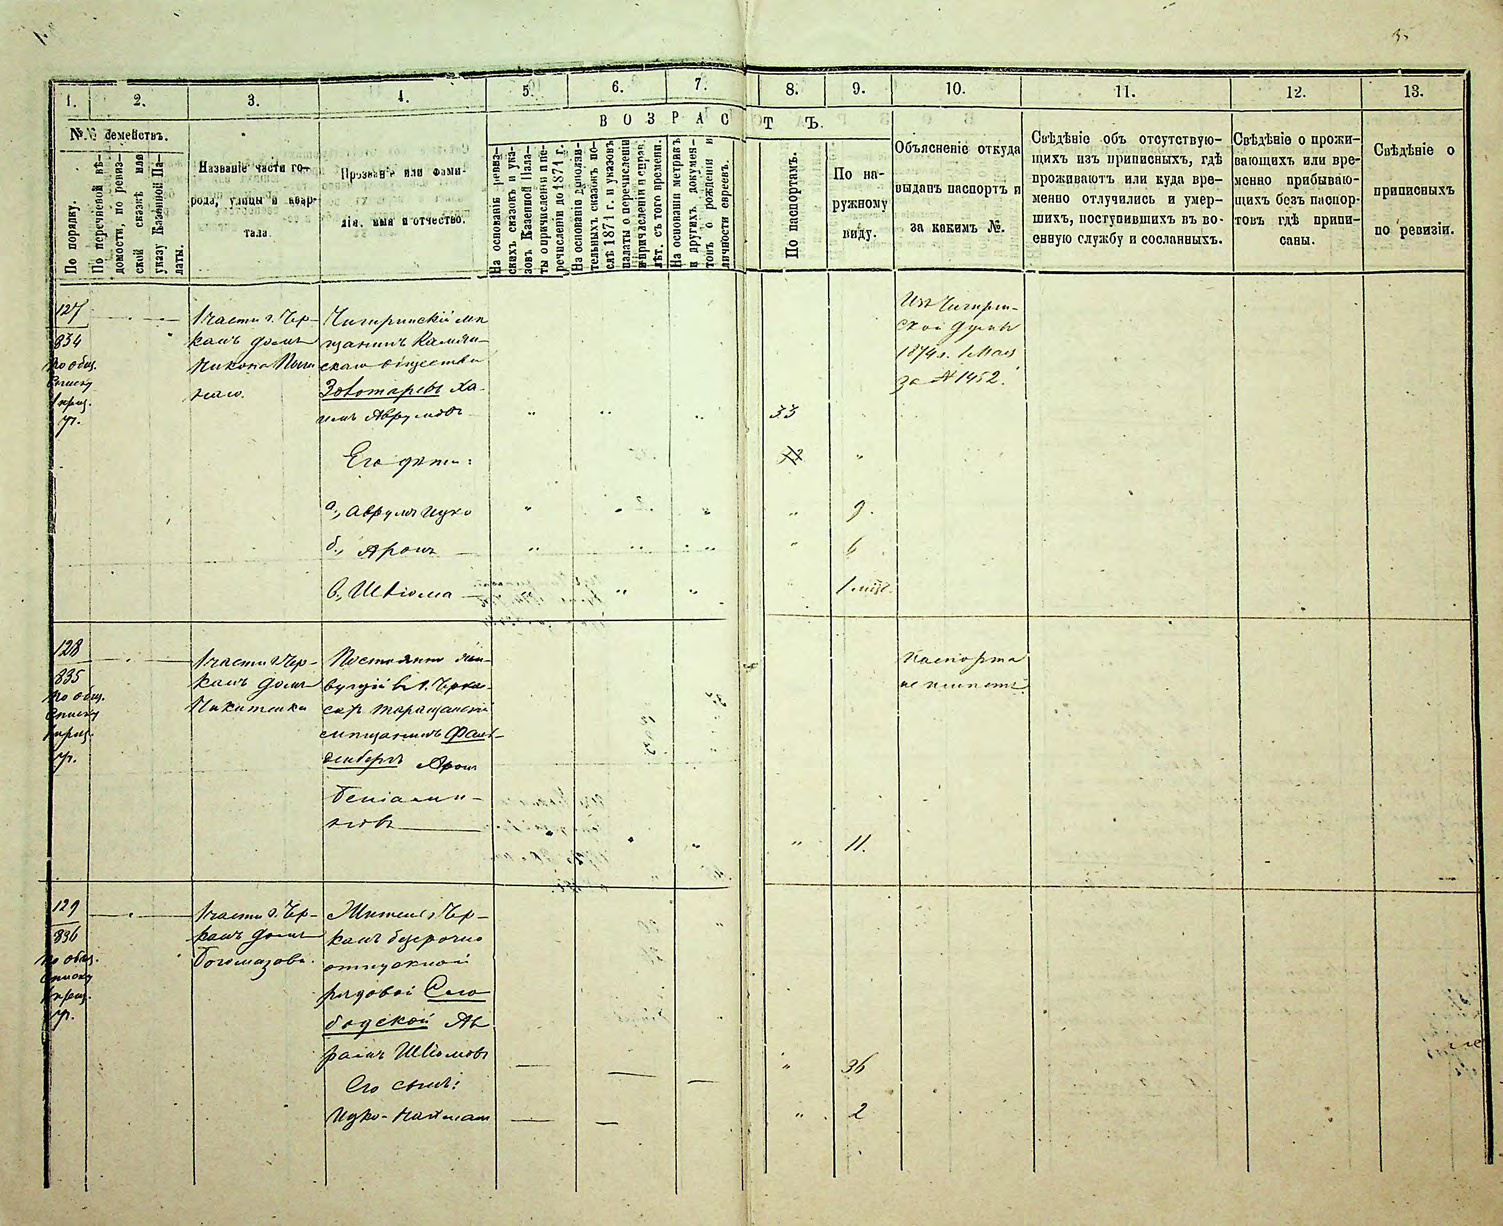 1. 2. 3. 4. 5. 6. 7. 8. 9. 10. 11. 12. 13.
В О З Р А С Т Ъ.
№№ семействъ.
По порядку.
По перечневой вѣ-
домости, по ревиз-
ской сказкѣ или
указу Казенной Па-
латы.
Названіе части го-
рода, улицы и квар-
тала
Прозваніе или фами-
лія, имя и отчество.
На основаніи ревиз-
скихъ сказокъ и ука-
зовъ Казенной Пала-
ты о причисленіи и пе-
речисленіи до 1871 г.
На основаніи дополни-
тельныхъ сказокъ по-
слѣ 1871 г. и указовъ
палаты о перечисленіи
и причисленіи и справ.
лѣт. съ того времени.
На основаніи метрикъ
и другихъ докумен-
товъ о рожденіи и
личности евреевъ.
По паспортамъ.
По на-
ружному
виду.
Объясненіе откуда
выданъ паспортъ и
за какимъ №.
Свѣдѣніе объ отсутствую-
щихъ изъ приписныхъ, гдѣ
проживаютъ или куда вре-
менно отлучились и умер-
шихъ, поступившихъ въ во-
енную службу и сосланныхъ.
Свѣдѣніе о прожи-
вающихъ или вре-
менно прибываю-
щихъ безъ паспор-
товъ гдѣ припи-
саны.
Свѣдѣніе о
приписныхъ
по ревизіи.
127
834
по общ.
списку
1 части г. Чер-
касъ домъ
Чигиринскій мѣ
щанинъ Камян-
скаго общества
Золотаревъ Ха-
имъ Аврумовъ " " " 33
Изъ Чигирин-
ской Думы
1874 г. 1 Мая
за № 1452.
Его дѣти:
а., Аврумъ Ицко " " " " 9.
б., Аронъ " " " " 6
в., Шліома " " 1 мѣс.
128
835
по общ.
списку
1 части г. Чер-
касъ домъ
Никитенка
Постоянно жи-
вущій въ г. Черка-
сах Таращанскій
мѣщанинъ
Аронъ
Беніами-
новъ " " " " 11.
Паспорта
не имѣетъ
129
836
по общ.
списку
1 части г. Чер-
касъ домъ
Богомазова.
Житель г. Чер-
касъ безсрочно
отпускной
рядовой Сло
бодской Ав
рамъ Шліомовъ " 36
Его сынъ:
Ицко-Нахман " 2